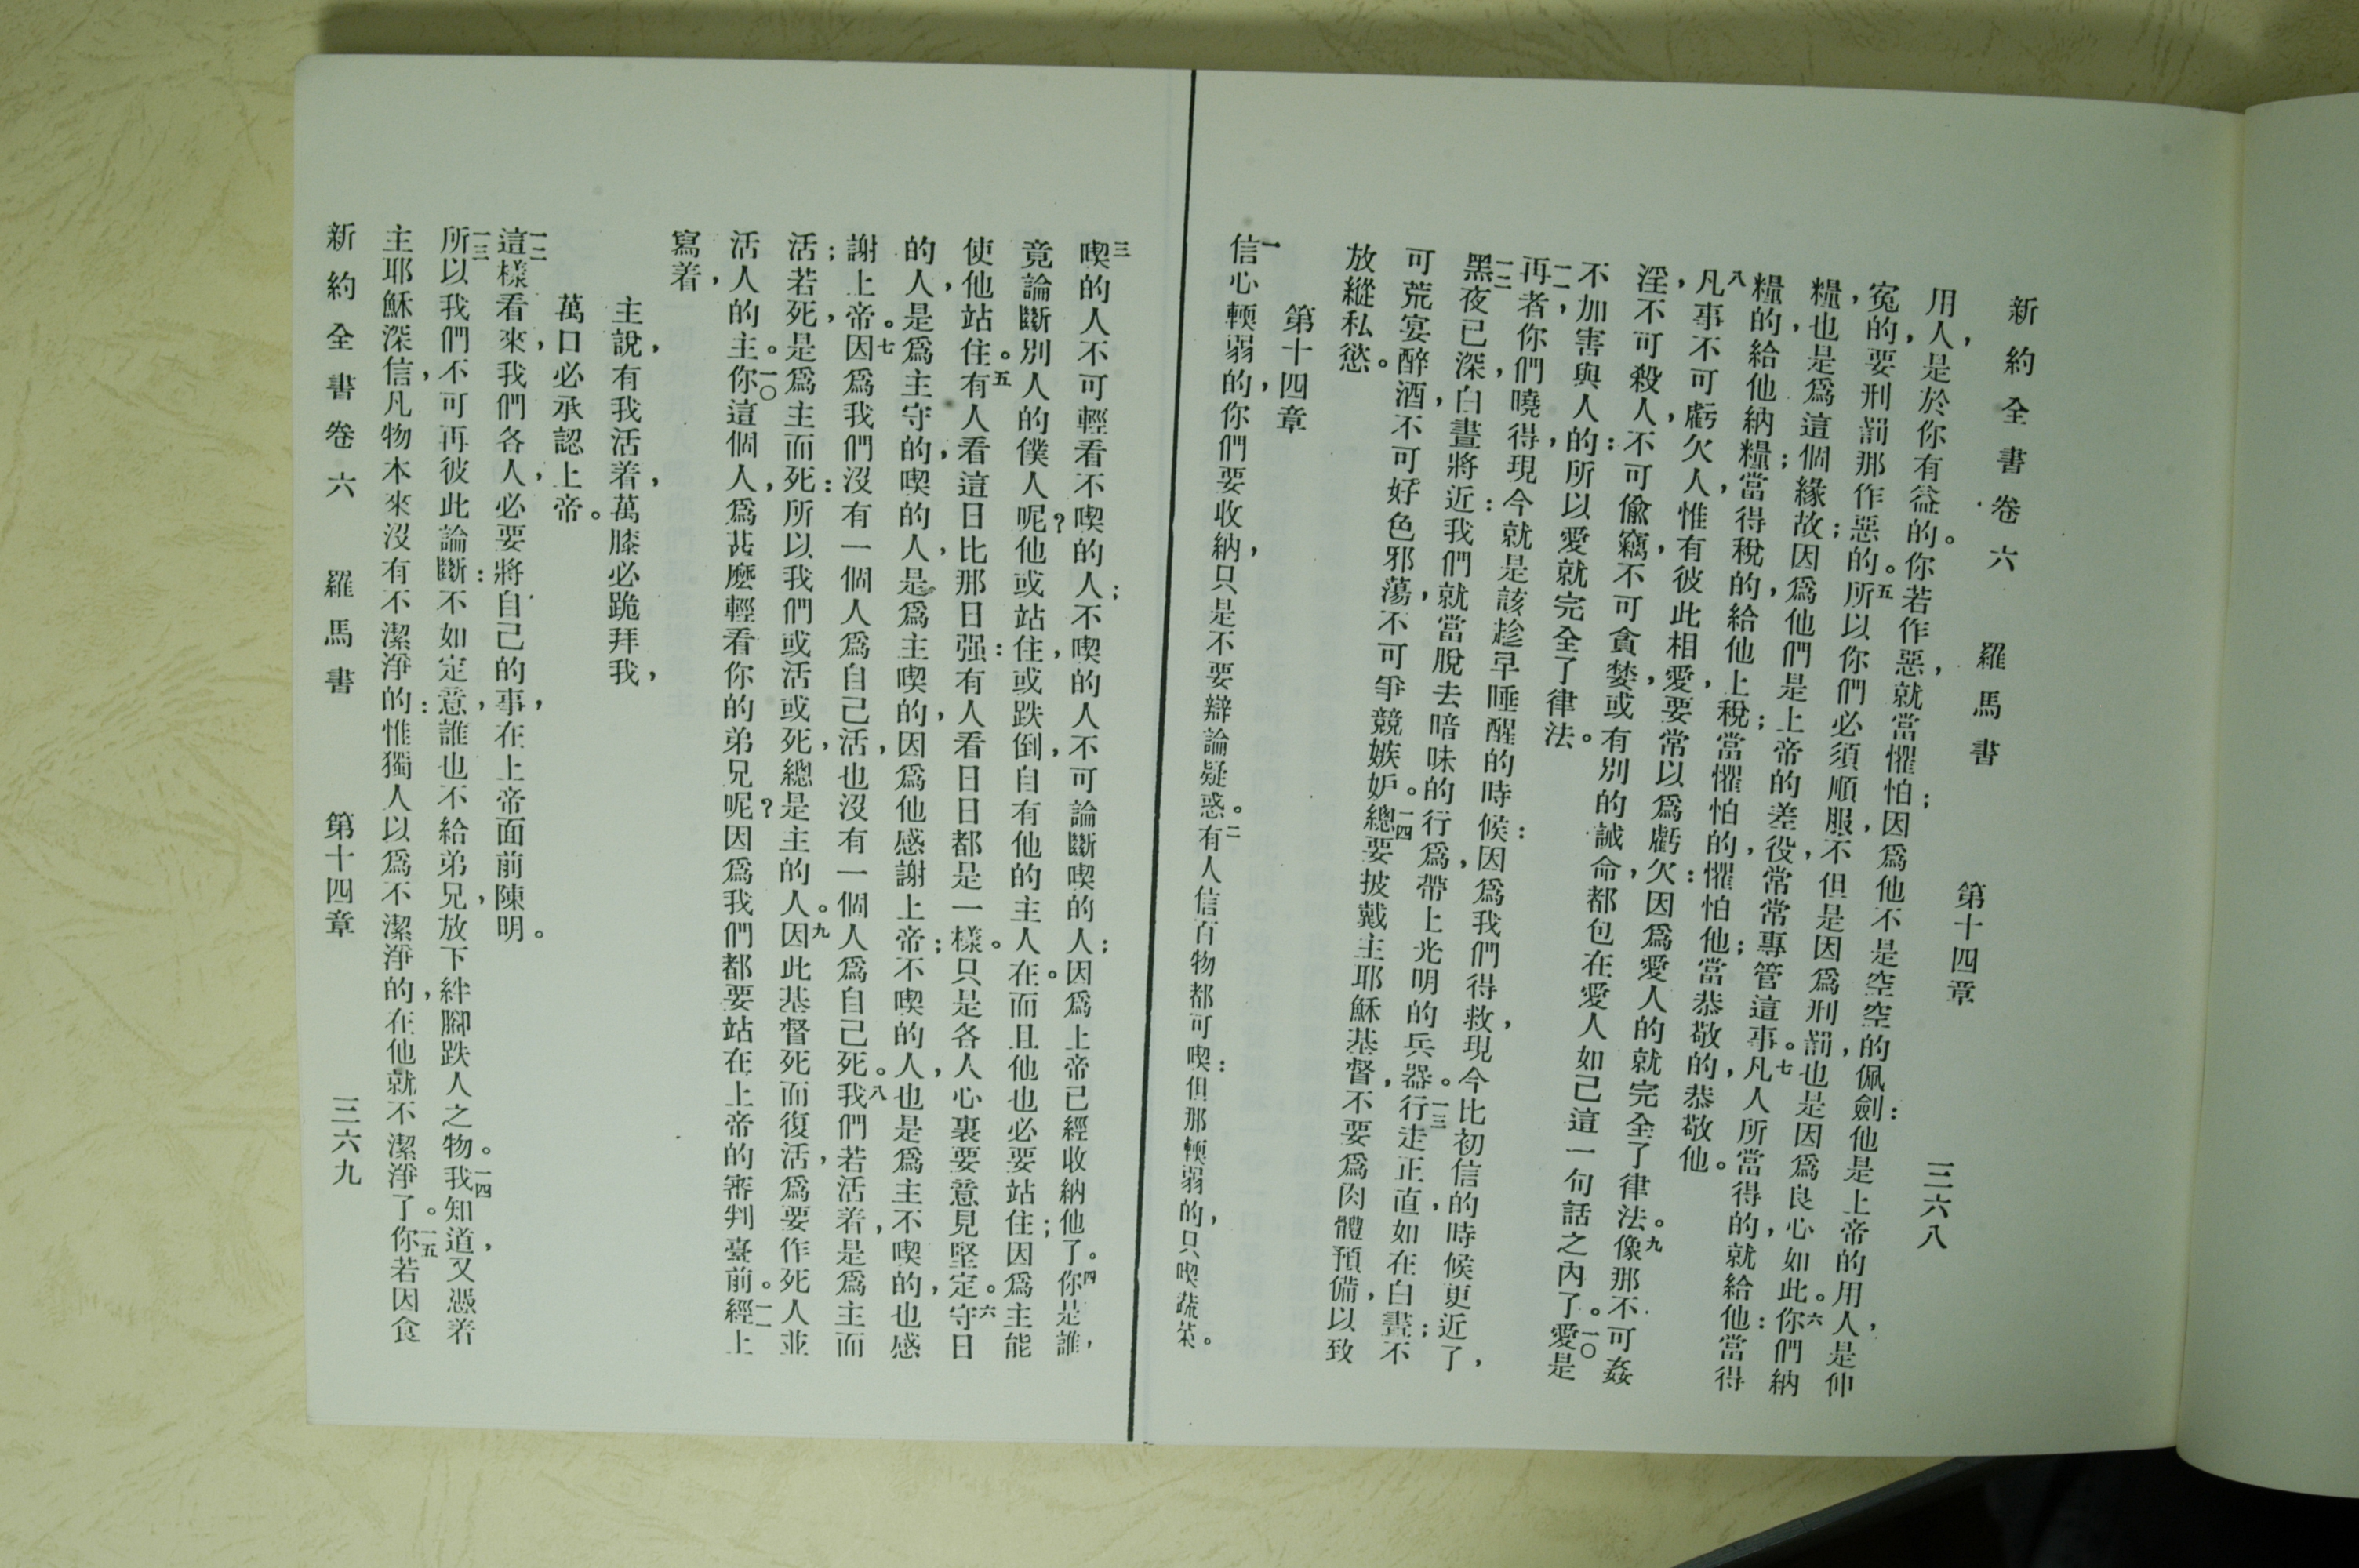 新約全書卷六　羅馬書　第十四章　三六八
用人，是於你有益的。你若作惡，就當懼怕；因爲他不是空空的佩劍：他是上帝的用人，是伸
寃的，要刑罰那作惡的。五所以你們必須順服，不但是因爲刑罰，也是因爲良心如此。六你們納
糧，也是爲這個緣故；因爲他們是上帝的差役，常常專管這事。七凡人所當得的，就給他：當得
糧的，給他納糧；當得稅的，給他上稅；當懼怕的，懼怕他；當恭敬的，恭敬他。
八凡事不可虧欠人，惟有彼此相愛，要常以爲虧欠：因爲愛人的就完全了律法。九像那不可姦
淫，不可殺人，不可偷竊，不可貪婪，或有別的誡命，都包在愛人如己這一句話之內了。一〇愛是
不加害與人的：所以愛就完全了律法。
一一再者，你們曉得，現今就是該趁早睡醒的時候：因爲我們得救，現今比初信的時候更近了，
一二黑夜已深，白晝將近：我們就當脫去暗昧的行爲，帶上光明的兵器。一三行走正直，如在白晝；不
可荒宴醉酒，不可好色邪蕩，不可爭競嫉妒。一四總要披戴主耶穌基督，不要爲肉體預備，以致
放縱私慾。
第十四章
一信心輭弱的，你們要收納，只是不要辯論疑惑。二有人信百物都可喫：但那輭弱的，只喫蔬菜。
三喫的人不可輕看不喫的人；不喫的人不可論斷喫的人；因爲上帝已經收納他了。四你是誰，
竟論斷別人的僕人呢？他或站住，或跌倒，自有他的主人在。而且他也必要站住；因爲主能
使他站住。五有人看這日比那日强：有人看日日都是一樣。只是各人心裏要意見堅定。六守日
的人，是爲主守的，喫的人，是爲主喫的，因爲他感謝上帝；不喫的人，也是爲主不喫的，也感
謝上帝。七因爲我們沒有一個人爲自己活，也沒有一個人爲自己死。八我們若活着，是爲主而
活；若死，是爲主而死：所以我們或活或死，總是主的人。九因此基督死而復活，爲要作死人並
活人的主。一〇你這個人，爲甚麽輕看你的弟兄呢？因爲我們都要站在上帝的審判臺前。一一經上
寫着，
主說，有我活着，萬膝必跪拜我，
萬口必承認上帝。
一二這樣看來，我們各人，必要將自己的事，在上帝面前陳明。
一三所以我們不可再彼此論斷：不如定意，誰也不給弟兄，放下絆腳跌人之物。一四我知道，又憑着
主耶穌深信，凡物本來沒有不潔淨的：惟獨人以爲不潔淨的，在他就不潔淨了。一五你若因食
新約全書卷六　羅馬書　第十四章　三六九